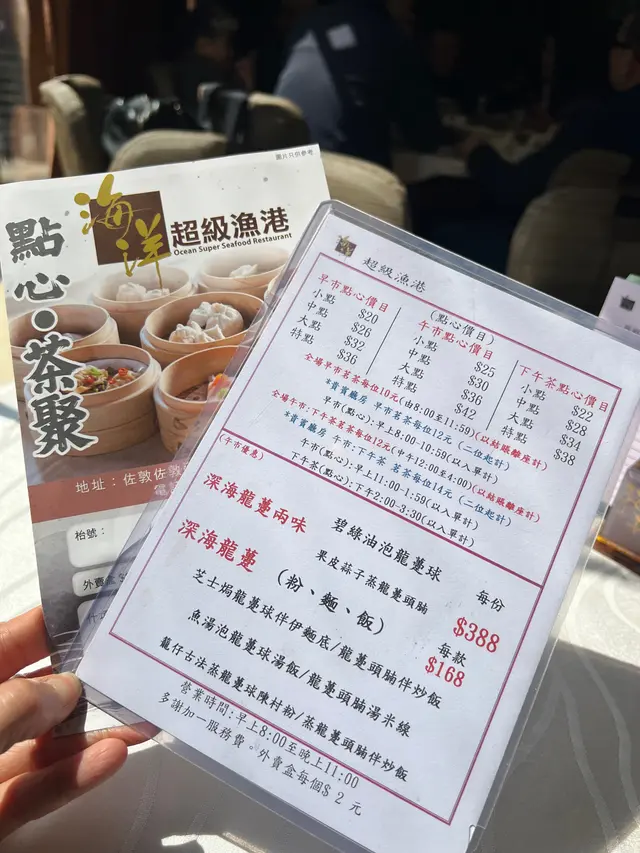 圖片只供參考
海洋
超級漁港
Ocean Super Seafood Restaurant
點心·茶聚
地址：佐敦佐敦
枱號：
外賣
超級漁港
(點心價目)
早市點心價目
小點 $20
中點 $26
大點 $32
特點 $36
午市點心價目
小點 $25
中點 $30
大點 $36
特點 $42
下午茶點心價目
小點 $22
中點 $28
大點 $34
特點 $38
全場早市茗茶每位10元(由8:00至11:59)(以結賬離座計)
*貴賓廳房 早市茗茶每位12元 (二位起計)
早市(點心):早上8:00-10:59(以入單計)
全場午市:下午茶茗茶每位12元(中午12:00至4:00)(以結賬離座計)
*貴賓廳房 午市:下午茶 茗茶每位14元 (二位起計)
午市(點心):早上11:00-1:59(以入單計)
下午茶(點心):下午2:00-3:30(以入單計)
(午市優惠)
深海龍躉兩味
碧綠油泡龍躉球
果皮蒜子蒸龍躉頭腩
每份
$388
深海龍躉
(粉、麵、飯)
每款
$168
芝士焗龍躉球伴伊麵底/龍躉頭腩伴炒飯
魚湯泡龍躉球湯飯/龍躉頭腩湯米線
籠仔古法蒸龍躉球陳村粉/蒸龍躉頭腩伴炒飯
營業時間:早上8:00至晚上11:00
多謝加一服務費。外賣盒每個$ 2 元